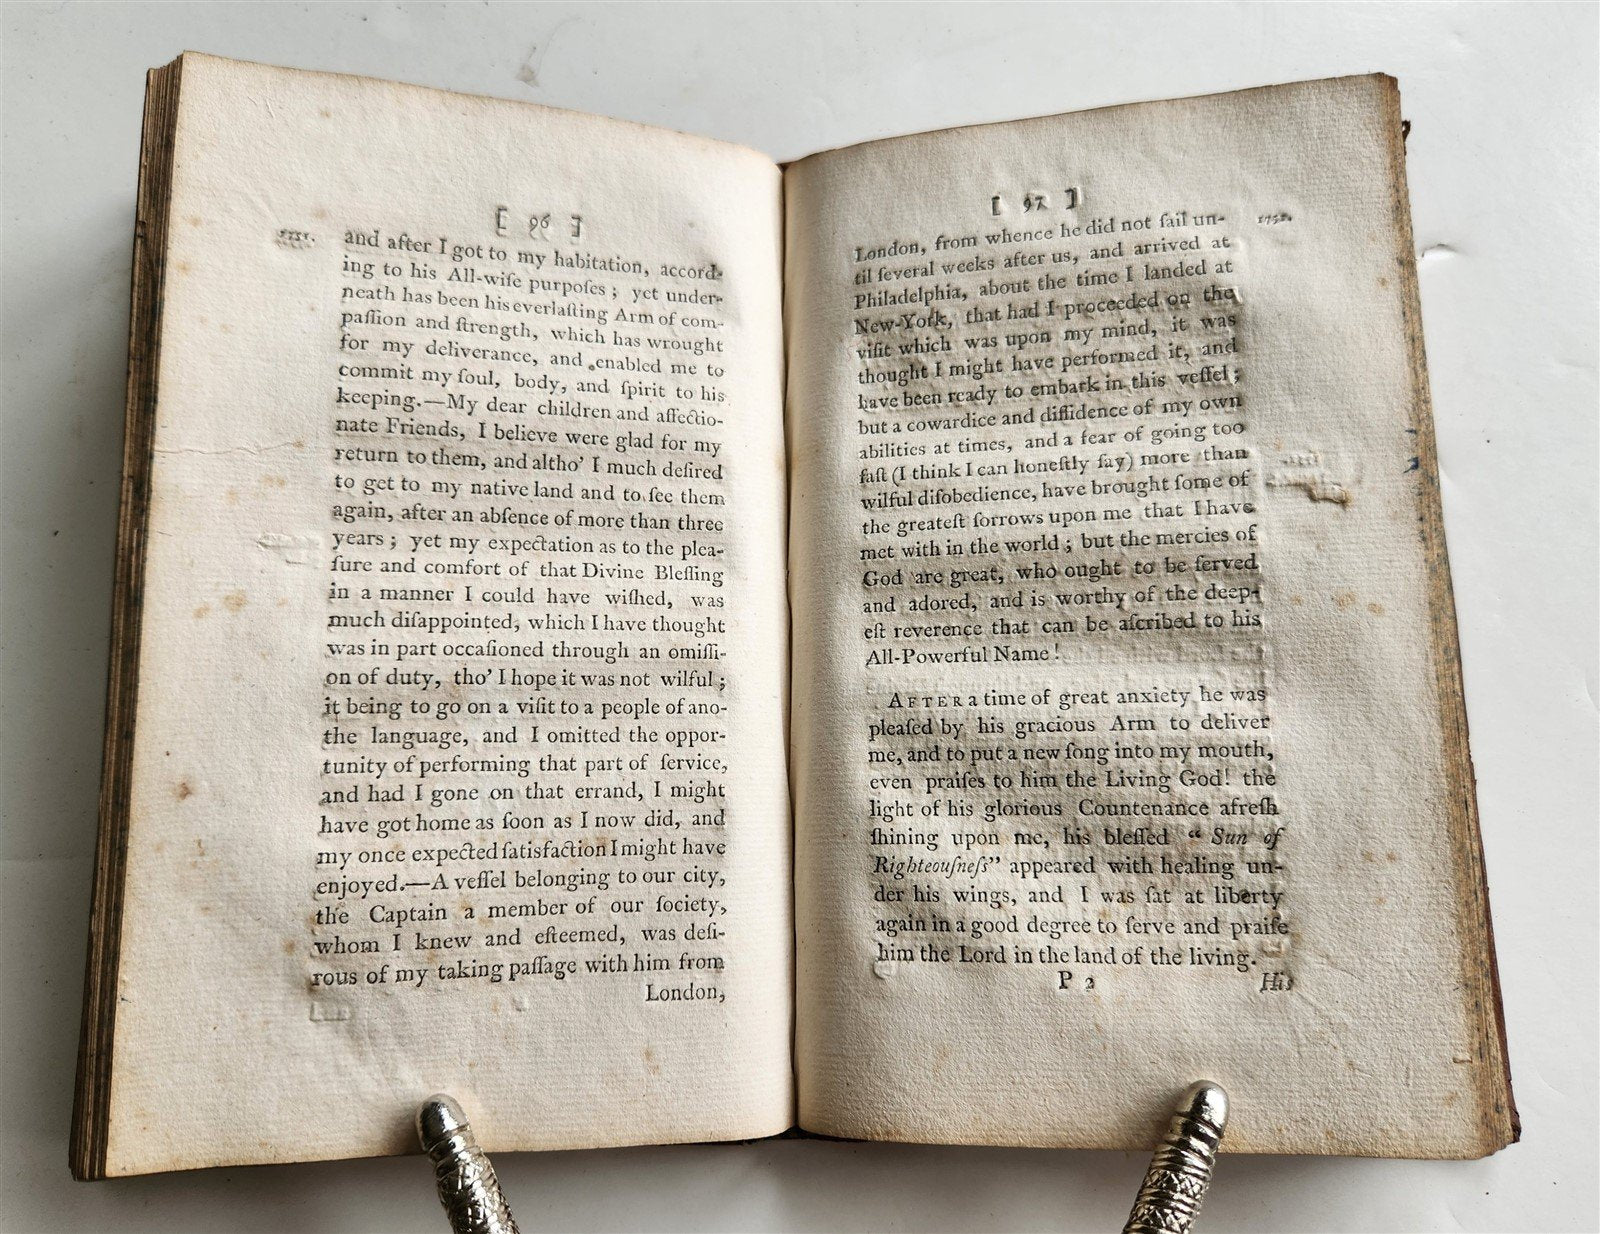 [ 96 ]
1751. and after I got to my habitation, accord-
ing to his All-wiſe purpoſes ; yet under-
neath has been his everlaſting Arm of com-
paſſion and ſtrength, which has wrought
for my deliverance, and enabled me to
commit my ſoul, body, and ſpirit to his
keeping.—My dear children and affectio-
nate Friends, I believe were glad for my
return to them, and altho' I much deſired
to get to my native land and to ſee them
again, after an abſence of more than three
years ; yet my expectation as to the plea-
ſure and comfort of that Divine Bleſſing
in a manner I could have wiſhed, was
much diſappointed, which I have thought
was in part occaſioned through an omiſſi-
on of duty, tho' I hope it was not wilful ;
it being to go on a viſit to a people of ano-
the language, and I omitted the oppor-
tunity of performing that part of ſervice,
and had I gone on that errand, I might
have got home as ſoon as I now did, and
my once expected ſatisfaction I might have
enjoyed.—A veſſel belonging to our city,
the Captain a member of our ſociety,
whom I knew and eſteemed, was deſi-
rous of my taking paſſage with him from
London,
[ 97 ]
London, from whence he did not ſail un-
til ſeveral weeks after us, and arrived at
Philadelphia, about the time I landed at
New-York, that had I proceeded on the
viſit which was upon my mind, it was
thought I might have performed it, and
have been ready to embark in this veſſel ;
but a cowardice and diffidence of my own
abilities at times, and a fear of going too
faſt (I think I can honeſtly ſay) more than
wilful diſobedience, have brought ſome of
the greateſt ſorrows upon me that I have
met with in the world ; but the mercies of
God are great, who ought to be ſerved
and adored, and is worthy of the deep-
eſt reverence that can be aſcribed to his
All-Powerful Name !
AFTER a time of great anxiety he was
pleaſed by his gracious Arm to deliver
me, and to put a new ſong into my mouth,
even praiſes to him the Living God! the
light of his glorious Countenance afreſh
ſhining upon me, his bleſſed " Sun of
Righteouſneſs" appeared with healing un-
der his wings, and I was ſat at liberty
again in a good degree to ſerve and praiſe
him the Lord in the land of the living.
P 2 His